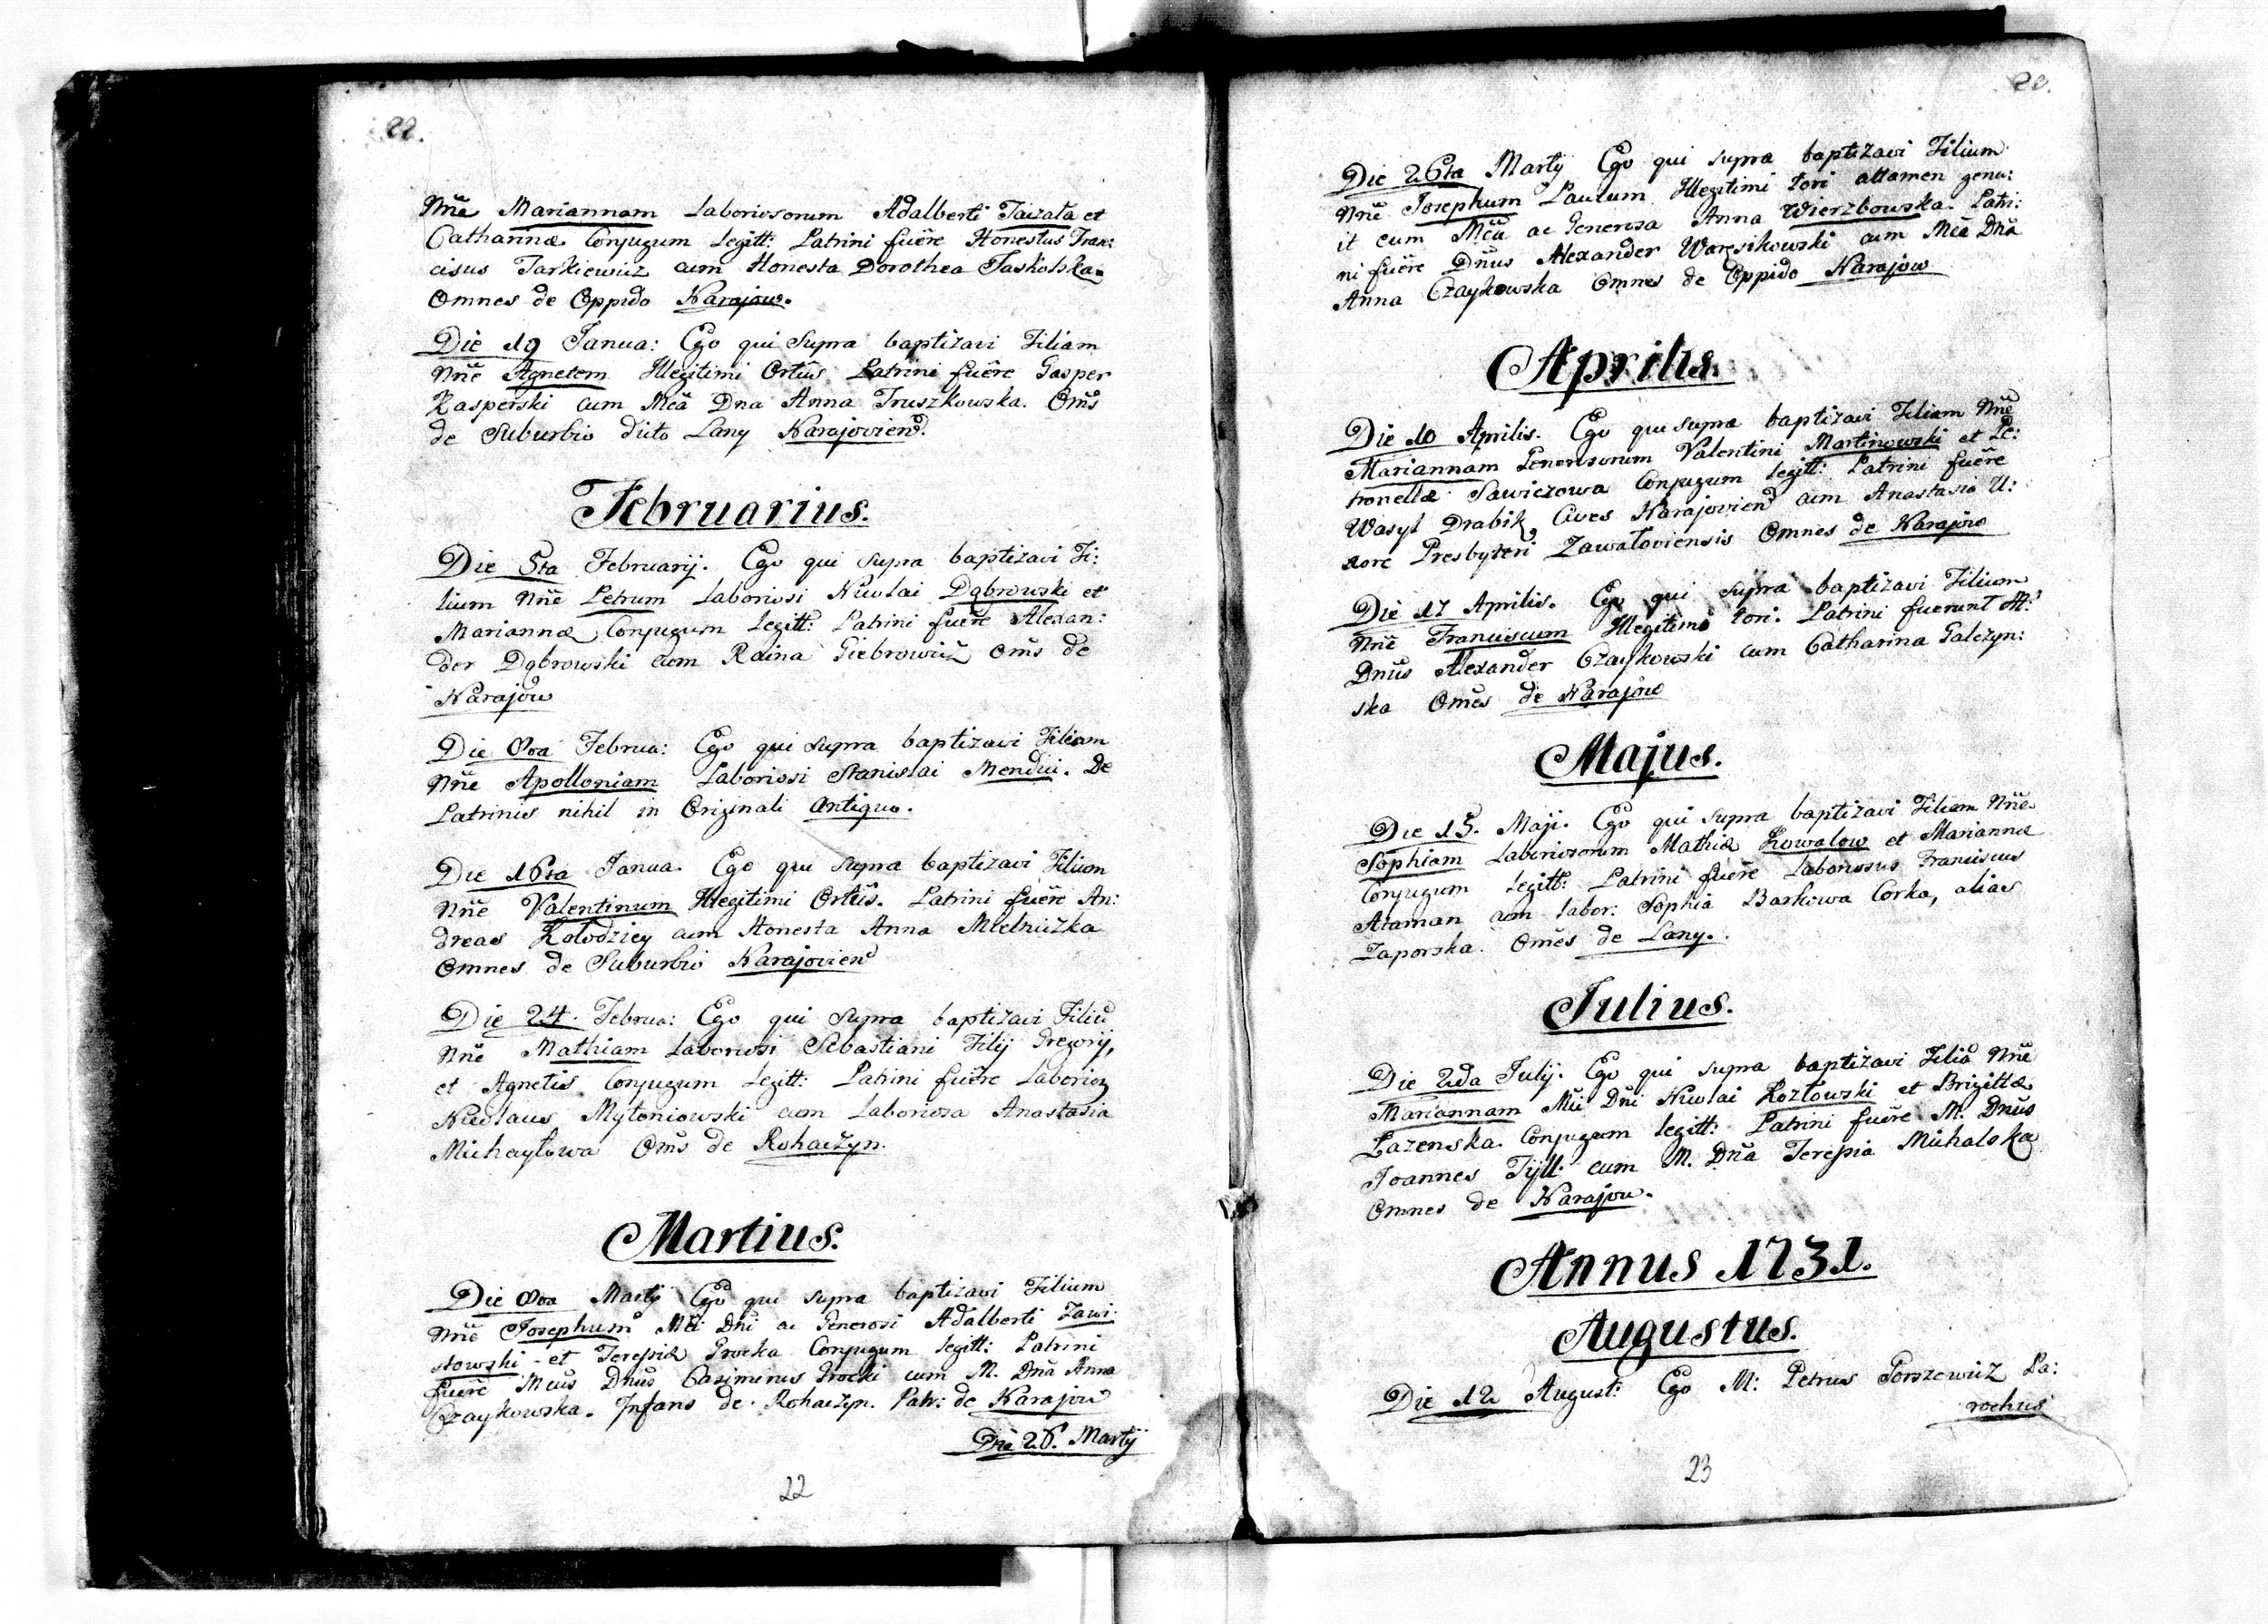 22.
Nñe Mariannam Laboriosorum Adalberti Taizata et
Catharinæ Conjugum Legitt: Patrini fuêre Honestus Fran:
cisus Tarkiewicz cum Honesta Dorothea Jaskolska
Omnes de Oppido Narajow.
Die 19 Janua: Ego qui Supra baptizavi Filiam
Nñe Agnetem Illegitimi Ortûs Patrini fuêre Gasper
Kasperski cum Mcâ Dna Anna Truszkowska. Oms̃
de Suburbio dicto Lany Narajovien.
Februarius.
Die 5ta Februarij. Ego qui supra baptizavi Fi:
lium Nñe Petrum Laboriosi Nicolai Dąbrowski et
Mariannæ Conjugum Legitt: Patrini fuêre Alexan:
der Dąbrowski cum Raina Giebrowicz Oms̃ de
Narajow
Die 8va Februa: Ego qui supra baptizavi Filiam
Nñe Apolloniam Laboriosi Stanislai Mendici. De
Patrinis nihil in Originali Antiquo.
Die 16ta Janua. Ego qui supra baptizavi Filium
Nñe Valentinum Illegitimi Ortûs. Patrini fuêre An:
dreas Kolodziey cum Honesta Anna Mielniczka
Omnes de Suburbio Narajovien
Die 24. Februa: Ego qui supra baptizavi Filiũ
Nñe Mathiam Laboriosi Sebastiani Filij Gregorij,
et Agnetis Conjugum Legitt: Patrini fuêre Laborios
Nicolaus Mytoniowski cum Laboriosa Anastasia
Michaylowa Oms̃ de Rohaczyn.
Martius.
Die 8va Martij Ego qui supra baptizavi Filium
Nñe Josephum Mci Dni ac Generosi Adalberti Zawi:
stowski et Teresiæ Grocka Conjugum Legitt: Patrini
fuêre Mcus Dnus Casimirus Grocki cum M. Dña Anna
Czaykowska. Infans de Rohaczyn. Patr: de Narajow
Die 26. Martij
22
23.
Die 26ta Martij Ego qui supra baptizavi Filium
Nñe Josephum Paulum Illegitimi tori attamen genu:
it cum Mcâ ac Generosa Anna Wierzbowska. Patri:
ni fuêre Dnus Alexander Waręsikowski cum Mcâ Dñâ
Anna Czaykowska Omnes de Oppido Narajow
Aprilis.
Die 10 Aprilis. Ego qui supra baptizavi Filiam Nñe
Mariannam Generosorum Valentini Martinowski et Pe:
tronellæ Sawiczowa Conjugum Legitt: Patrini fuêre
Wasyl Drabik, Cives Narajovien cum Anastasia U:
xore Presbyteri Zawaloviensis Omnes de Narajow
Die 17 Aprilis. Ego qui supra baptizavi Filium
Nñe Franciscum Illegitimi tori. Patrini fuerunt M:
Dnus Alexander Czaykowski cum Catharina Galczyn:
ska Omẽs de Narajow
Majus.
Die 15. Maji. Ego qui supra baptizavi Filiam Nñe
Sophiam Laboriosorum Mathiæ Kowalow et Mariannæ
Conjugum Legitt: Patrini fuêre Laboriosus Franciscus
Ataman cum Labor: Sophia Barkowa Corka, alias
Zaporska. Omẽs de Lany.
Julius.
Die 2da Julij. Ego qui supra baptizavi Filiã Nñe
Mariannam Mci Dñi Nicolai Kozlowski et Brigittæ
Lazenska Conjugum Legitt: Patrini fuêre M. Dnus
Joannes Tyll cum M. Dña Teresia Michalska
Omnes de Narajow.
Annus 1731.
Augustus.
Die 12 August: Ego M: Petrus Porszewicz Pa:
rochus
23